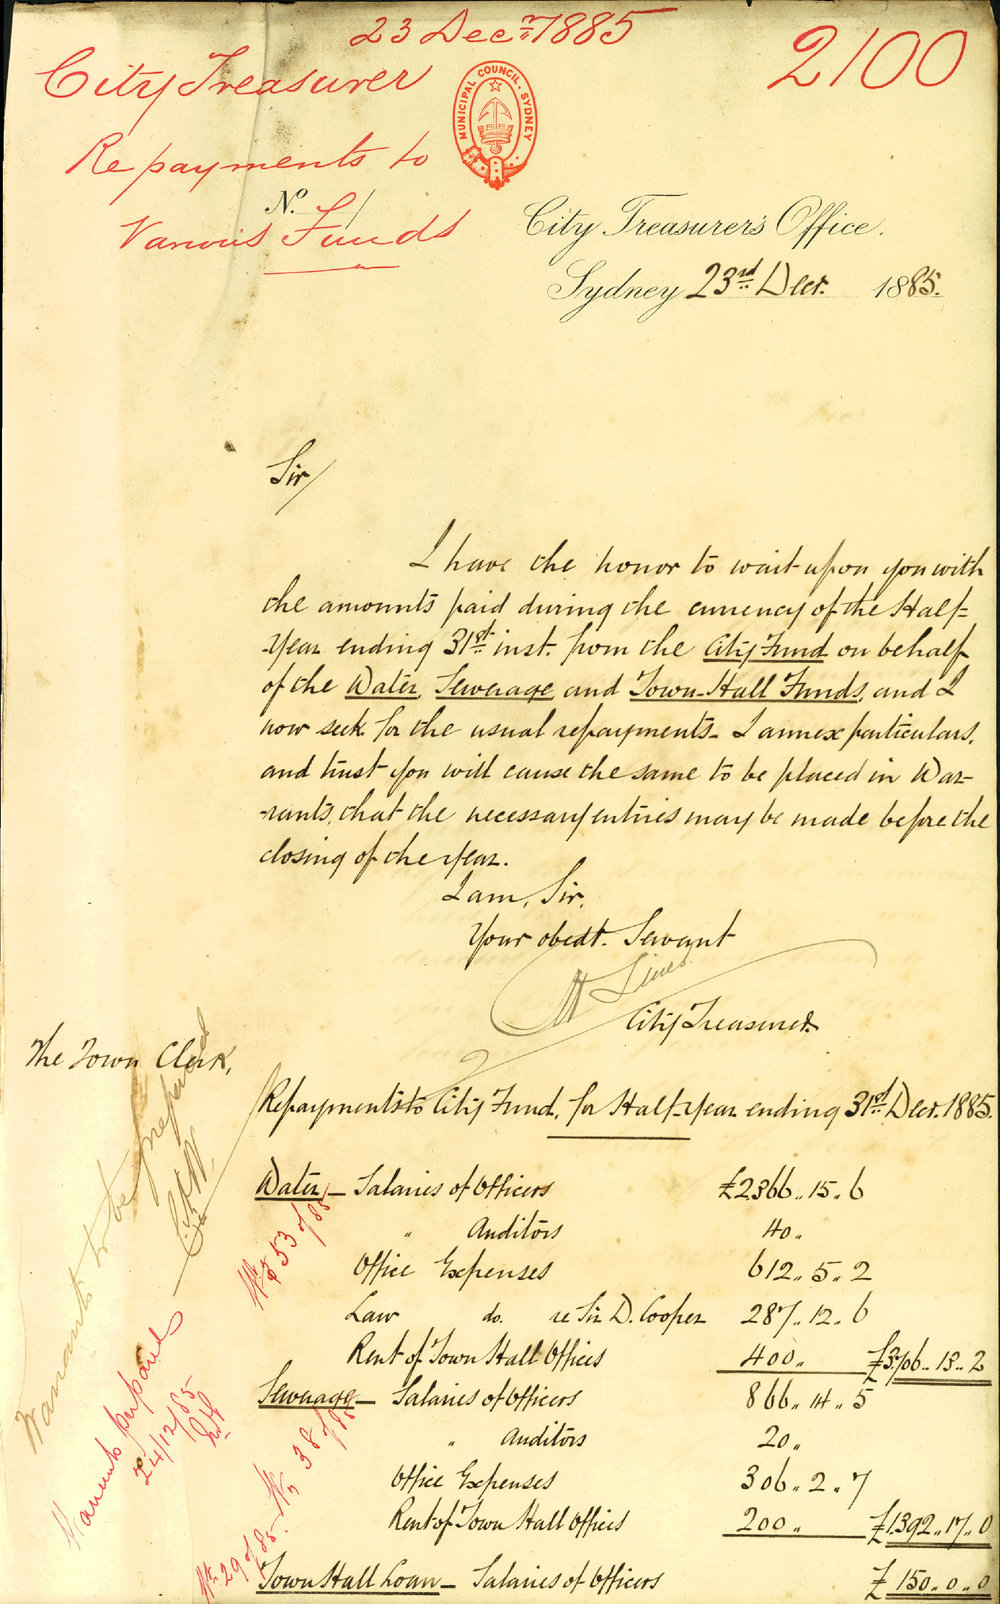 23 Decr. 1885
2100
City Treasurer
Repayments to
Various Funds
MUNICIPAL COUNCIL. SYDNEY
No.
City Treasurer's Office.
Sydney 23rd Decr. 1885.
Sir/
I have the honor to wait upon you with
the amounts paid during the currency of the Half-
-Year ending 31st inst. from the City Fund on behalf
of the Water, Sewerage, and Town-Hall Funds, and I
now seek for the usual repayments - I annex particulars,
and trust you will cause the same to be placed in War-
-rants, that the necessary entries may be made before the
closing of the year.
I am, Sir,
Your obedt. Servant
Lines
City Treasurer
The Town Clerk,
Repayments to City Fund, for Half-Year ending 31st Decr. 1885.
Water - Salaries of Officers £2366 .. 15 .. 6
" Auditors 40 ..
Office Expenses 612 .. 5 .. 2
Law do. re Sir D. Cooper 287 .. 12 .. 6
Rent of Town Hall Offices 400 .. £3706 .. 13 .. 2
Sewerage - Salaries of Officers 866 .. 14 .. 5
" Auditors 20 ..
Office Expenses 306 .. 2 .. 7
Rent of Town Hall Offices 200 .. £1392 .. 17 .. 0
Town Hall Loan - Salaries of Officers £150 .. 0 .. 0
Warrants to be prepared
Warrants prepared
24/12/85
No. 53 of 85
No. 38 of 85
No. 29 of 85